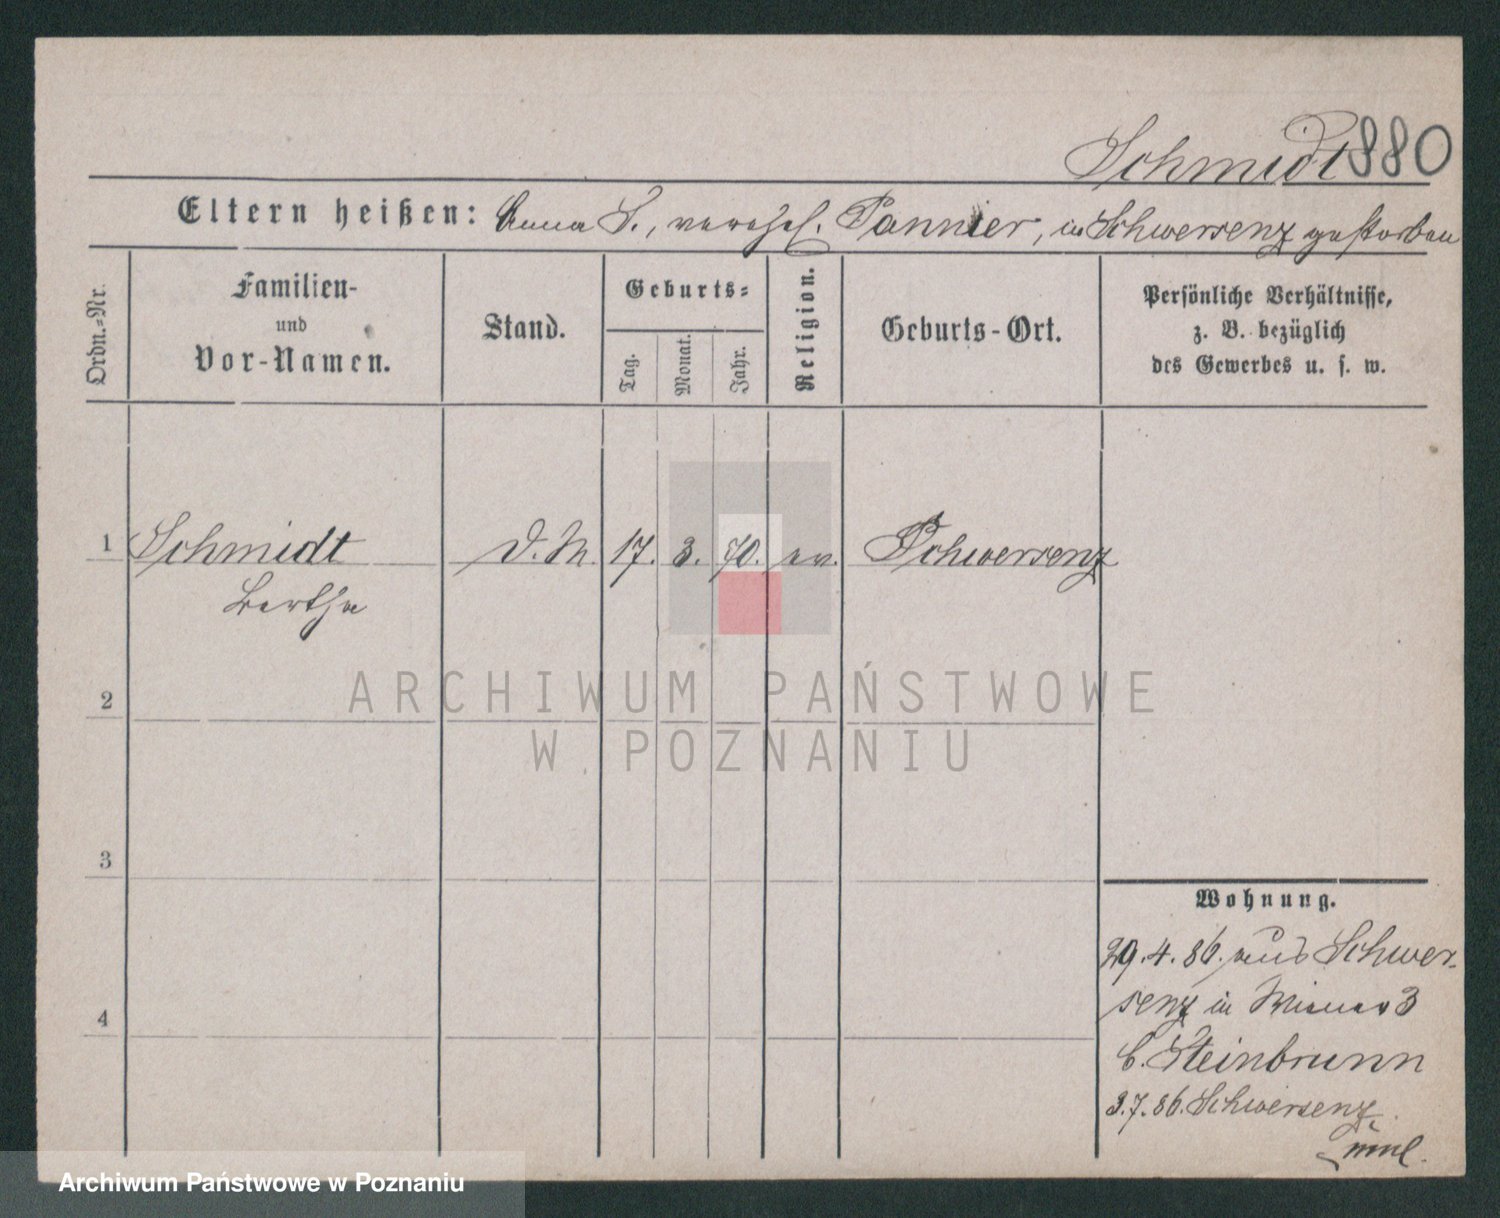 Schmidt 880
Eltern heißen: Anna S., verehel. Pannier, in Schwersenz gestorben
Ordn.-Nr.
Familien-
und
Vor-Namen.
Stand.
Geburts-
Tag.
Monat.
Jahr.
Religion.
Geburts-Ort.
Persönliche Verhältnisse,
z. B. bezüglich
des Gewerbes u. s. w.
1 Schmidt D. M. 17. 3. 70. ev. Schwersenz
Bertha
2
ARCHIWUM PAŃSTWOWE
W POZNANIU
3
4
Wohnung.
29.4.86. aus Schwer-
senz in Wiener 3
b. Steinbrunn
3.7.86. Schwersenz
Archiwum Państwowe w Poznaniu